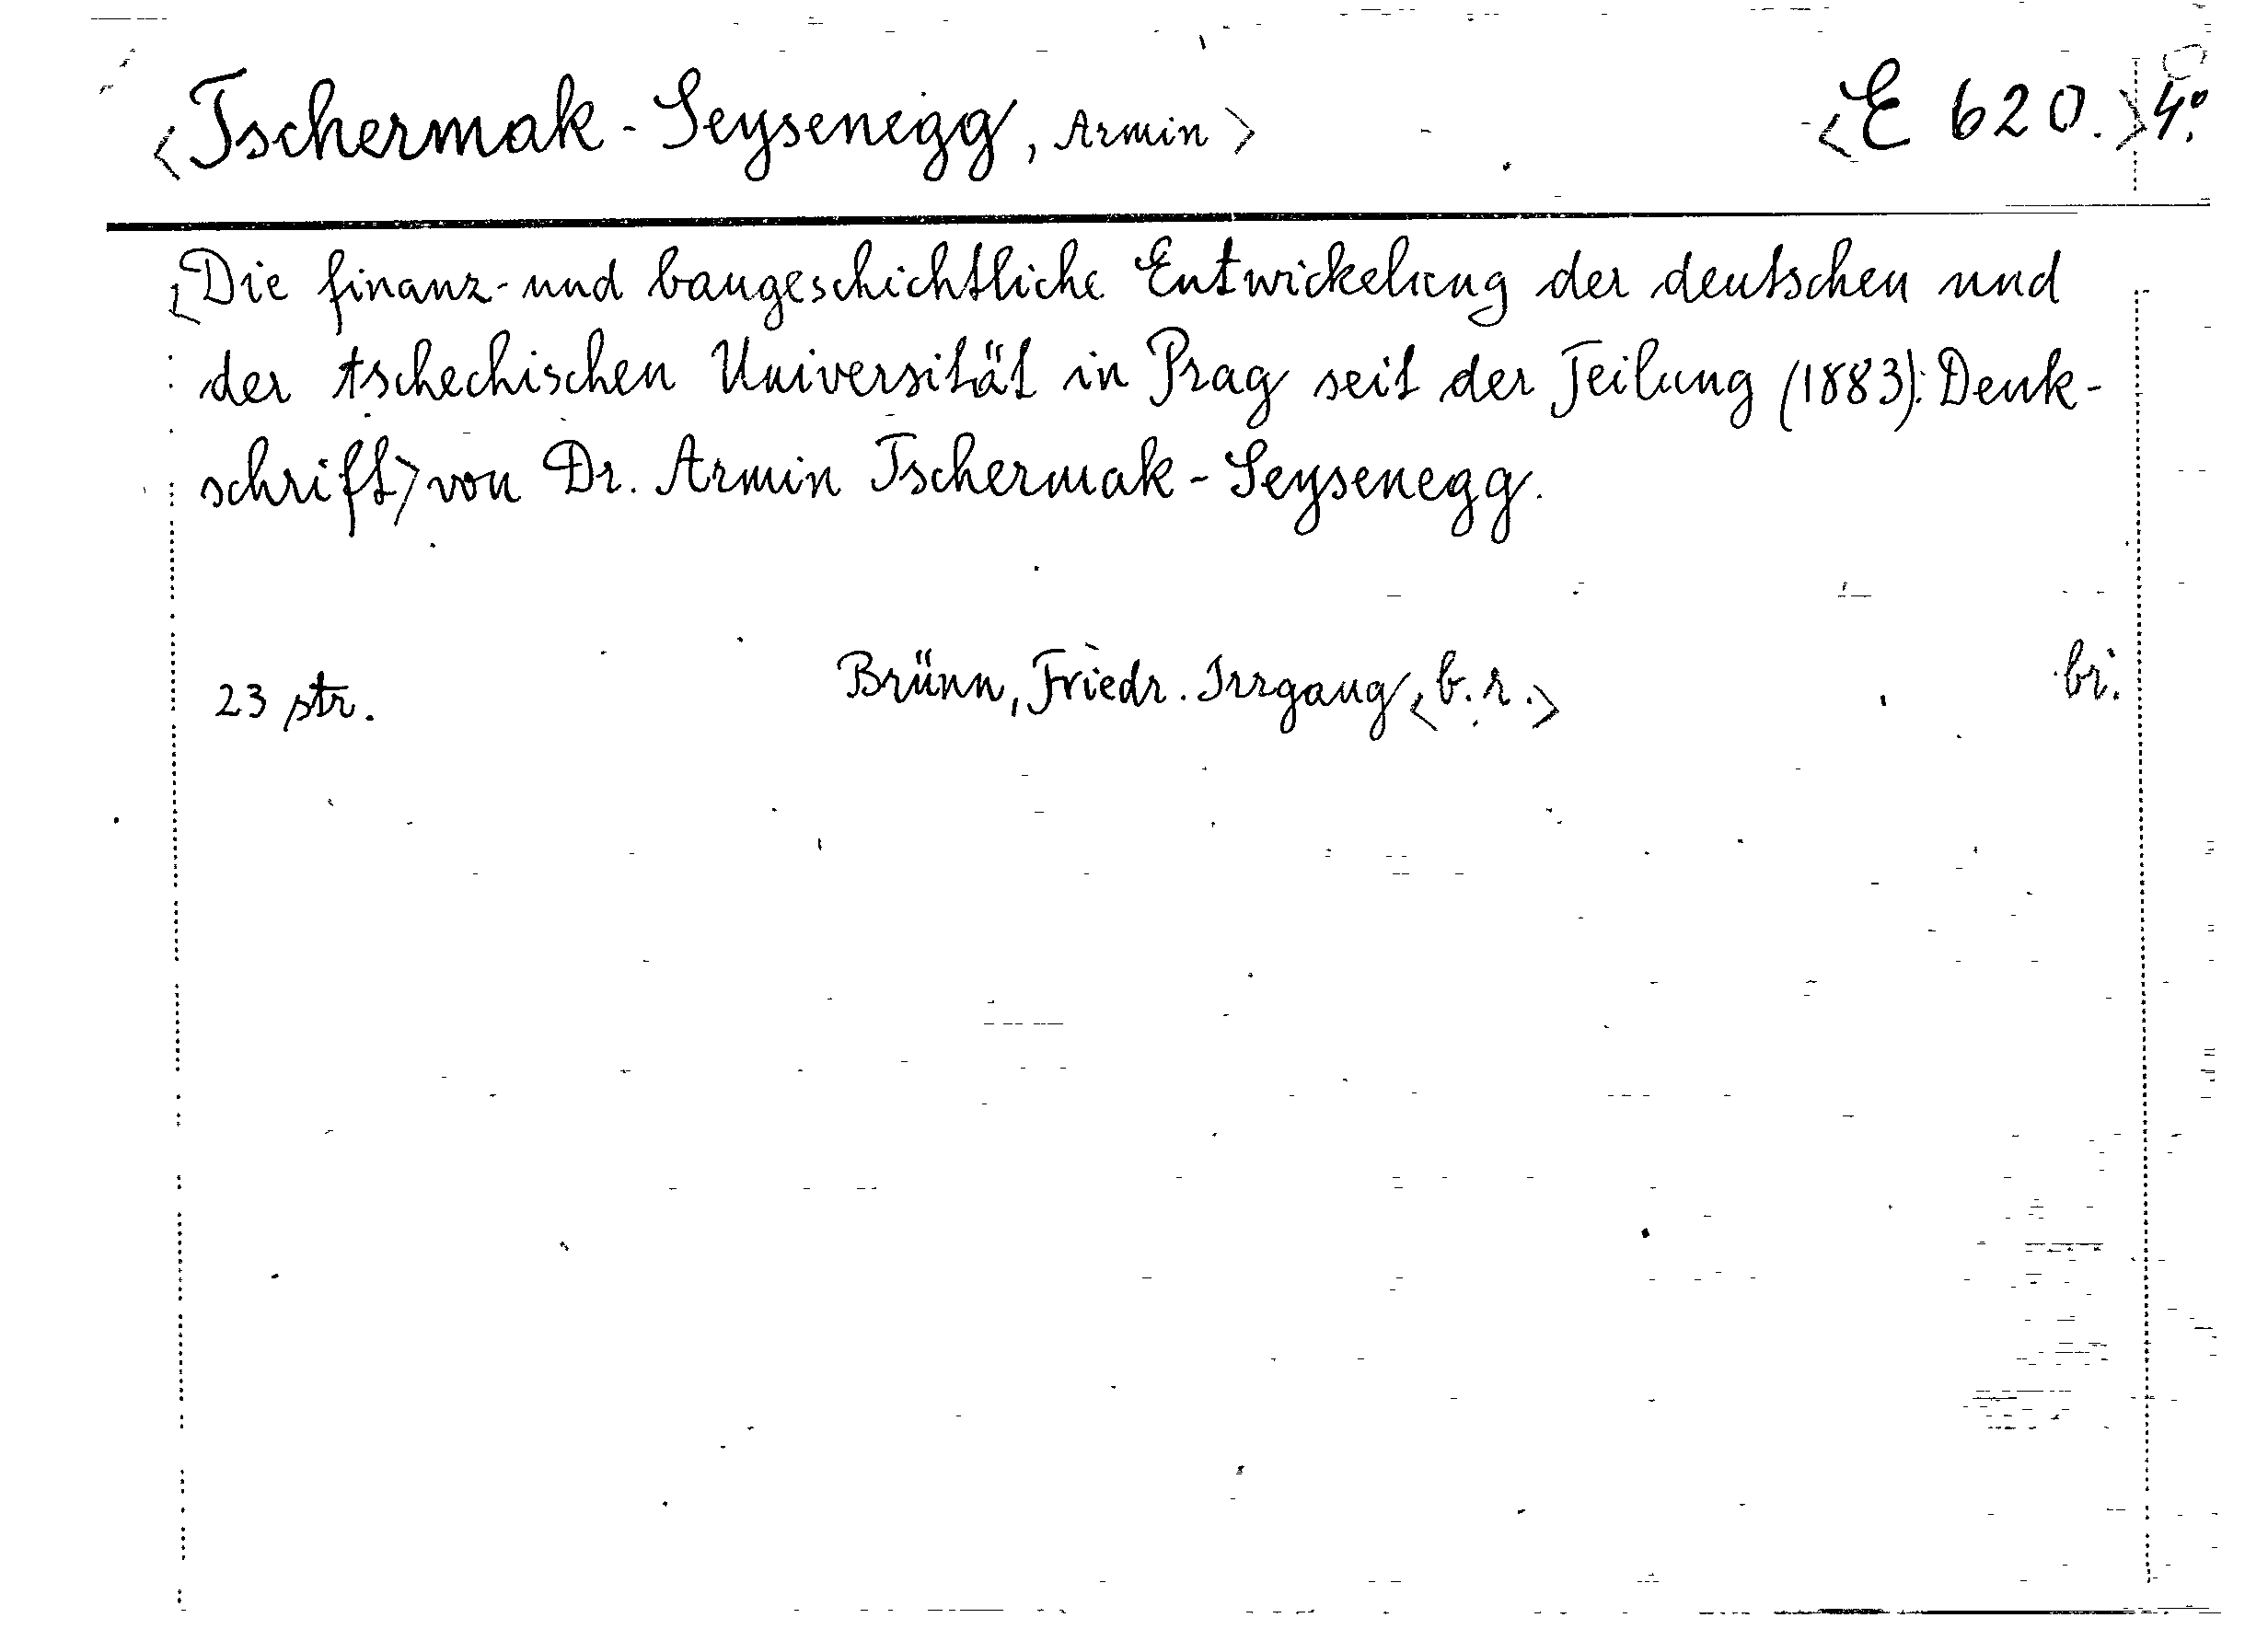 <Tschermak-Seysenegg, Armin> <E 620.> 4°.
<Die finanz- und baugeschichtliche Entwickelung der deutschen und
der tschechischen Universität in Prag seit der Teilung (1883): Denk-
schrift> von Dr. Armin Tschermak-Seysenegg.
23 str. Brünn, Friedr. Irrgang <b. r.> br.